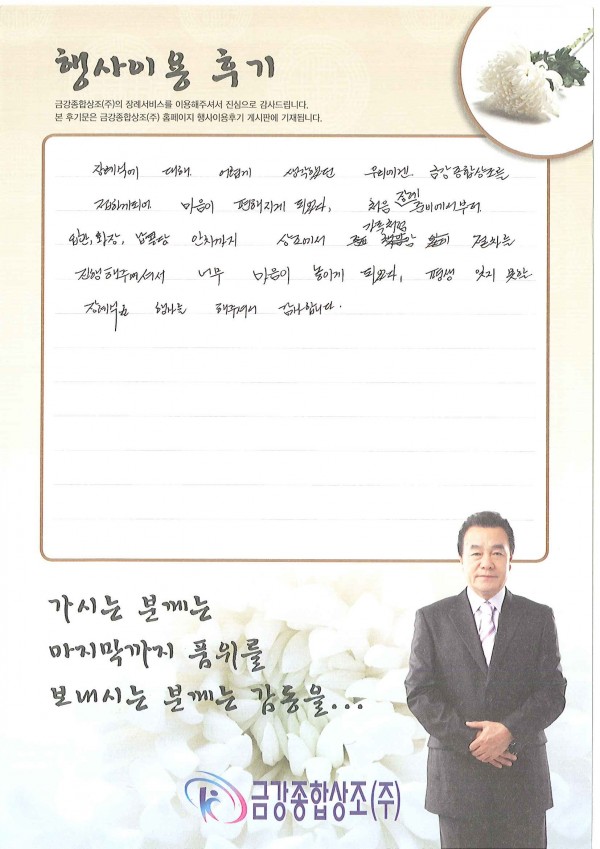 행사이용 후기
금강종합상조(주)의 장례서비스를 이용해주셔서 진심으로 감사드립니다.
본 후기문은 금강종합상조(주) 홈페이지 행사이용후기 게시판에 기재됩니다.
장례식에 대해 어렵게 생각했던 우리에겐 금강종합상조를
접하게되어 마음이 편해지게 되었다, 처음 장례 준비에서부터
입관, 화장, 납골당 안치까지 상조에서 가족처럼 절차를
진행해주셔서 너무 마음이 놓이게 되었다, 평생 잊지 못할
장례식 행사를 해주셔서 감사합니다.
가시는 분께는
마지막까지 품위를
보내시는 분께는 감동을...
금강종합상조(주)